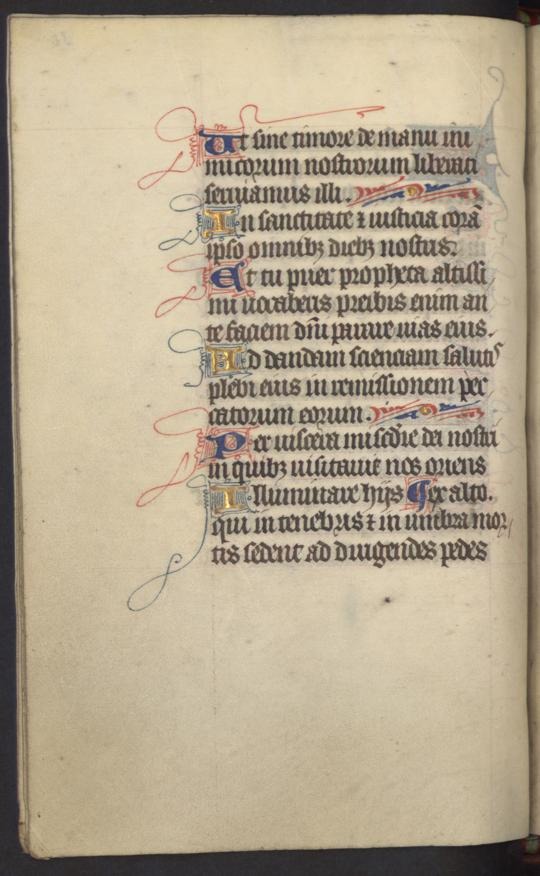 Ut sine timore de manu ini
micorum nostrorum liberati
seruiamus illi .
In sanctitate ⁊ iusticia corā
ipso omnibꝫ diebꝫ nostris.
Et tu puer propheta altissi
mi uocaberis preibis enim an
te faciem dn̄i parare uias eius .
Ad dandam scienciam salutis
plebi eius in remissionem pec
catorum eorum .
Per uiscera miscd̄ie dei nostri
in quibꝫ uisitauit nos oriens
Illuminare hijs ex alto.
qui in tenebris ⁊ in umbra mor
tis sedent ad dirigendos pedes